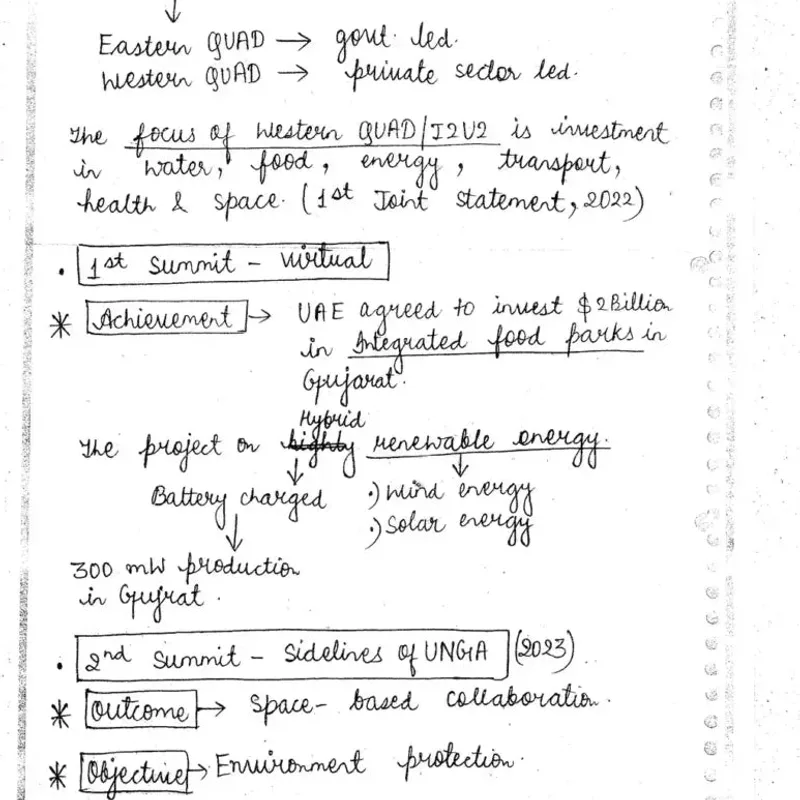 ↓
Eastern QUAD → govt. led.
Western QUAD → private sector led.
The focus of Western QUAD/I2U2 is investment
in water, food, energy, transport,
health & space. (1st Joint Statement, 2022)
. 1st Summit – Virtual
* Achievement → UAE agreed to invest $2Billion
in Integrated food parks in
Gujarat.
Hybrid
The project on highly renewable energy.
↓ ↓
Battery charged .) Wind energy
↓ .) Solar energy
300 mW production
in Gujrat.
. 2nd Summit – Sidelines of UNGA (2023)
* Outcome → Space-based collaboration.
* Objective → Environment protection.